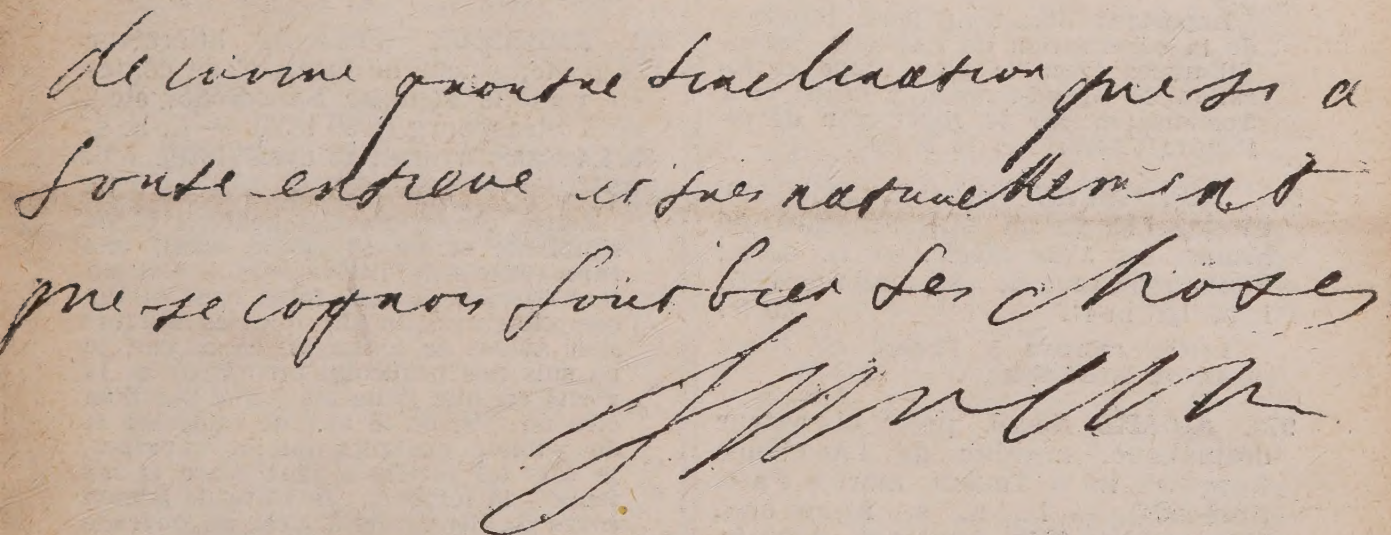 de croire quoutre linclination que jy a
toute entiere naturellement
que je cognois fort bien les choses